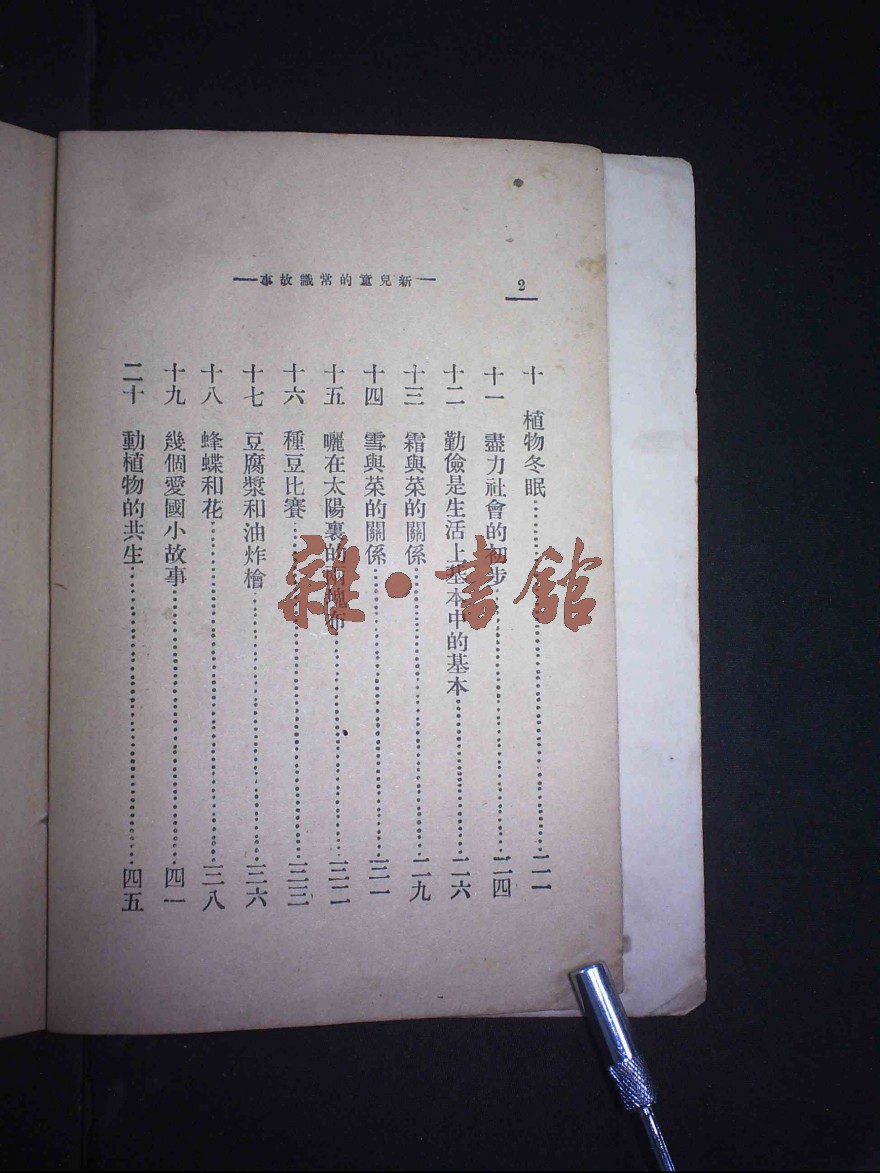 2
新兒童的常識故事
十 植物冬眠……二一
十一 盡力社會的初步……二四
十二 勤儉是生活上基本中的基本……二六
十三 霜與菜的關係……二九
十四 雪與菜的關係……三一
十五 曬在太陽裏的兩塊布……三二
十六 種豆比賽……三三
十七 豆腐漿和油炸檜……三六
十八 蜂蝶和花……三八
十九 幾個愛國小故事……四一
二十 動植物的共生……四五
雜·書館